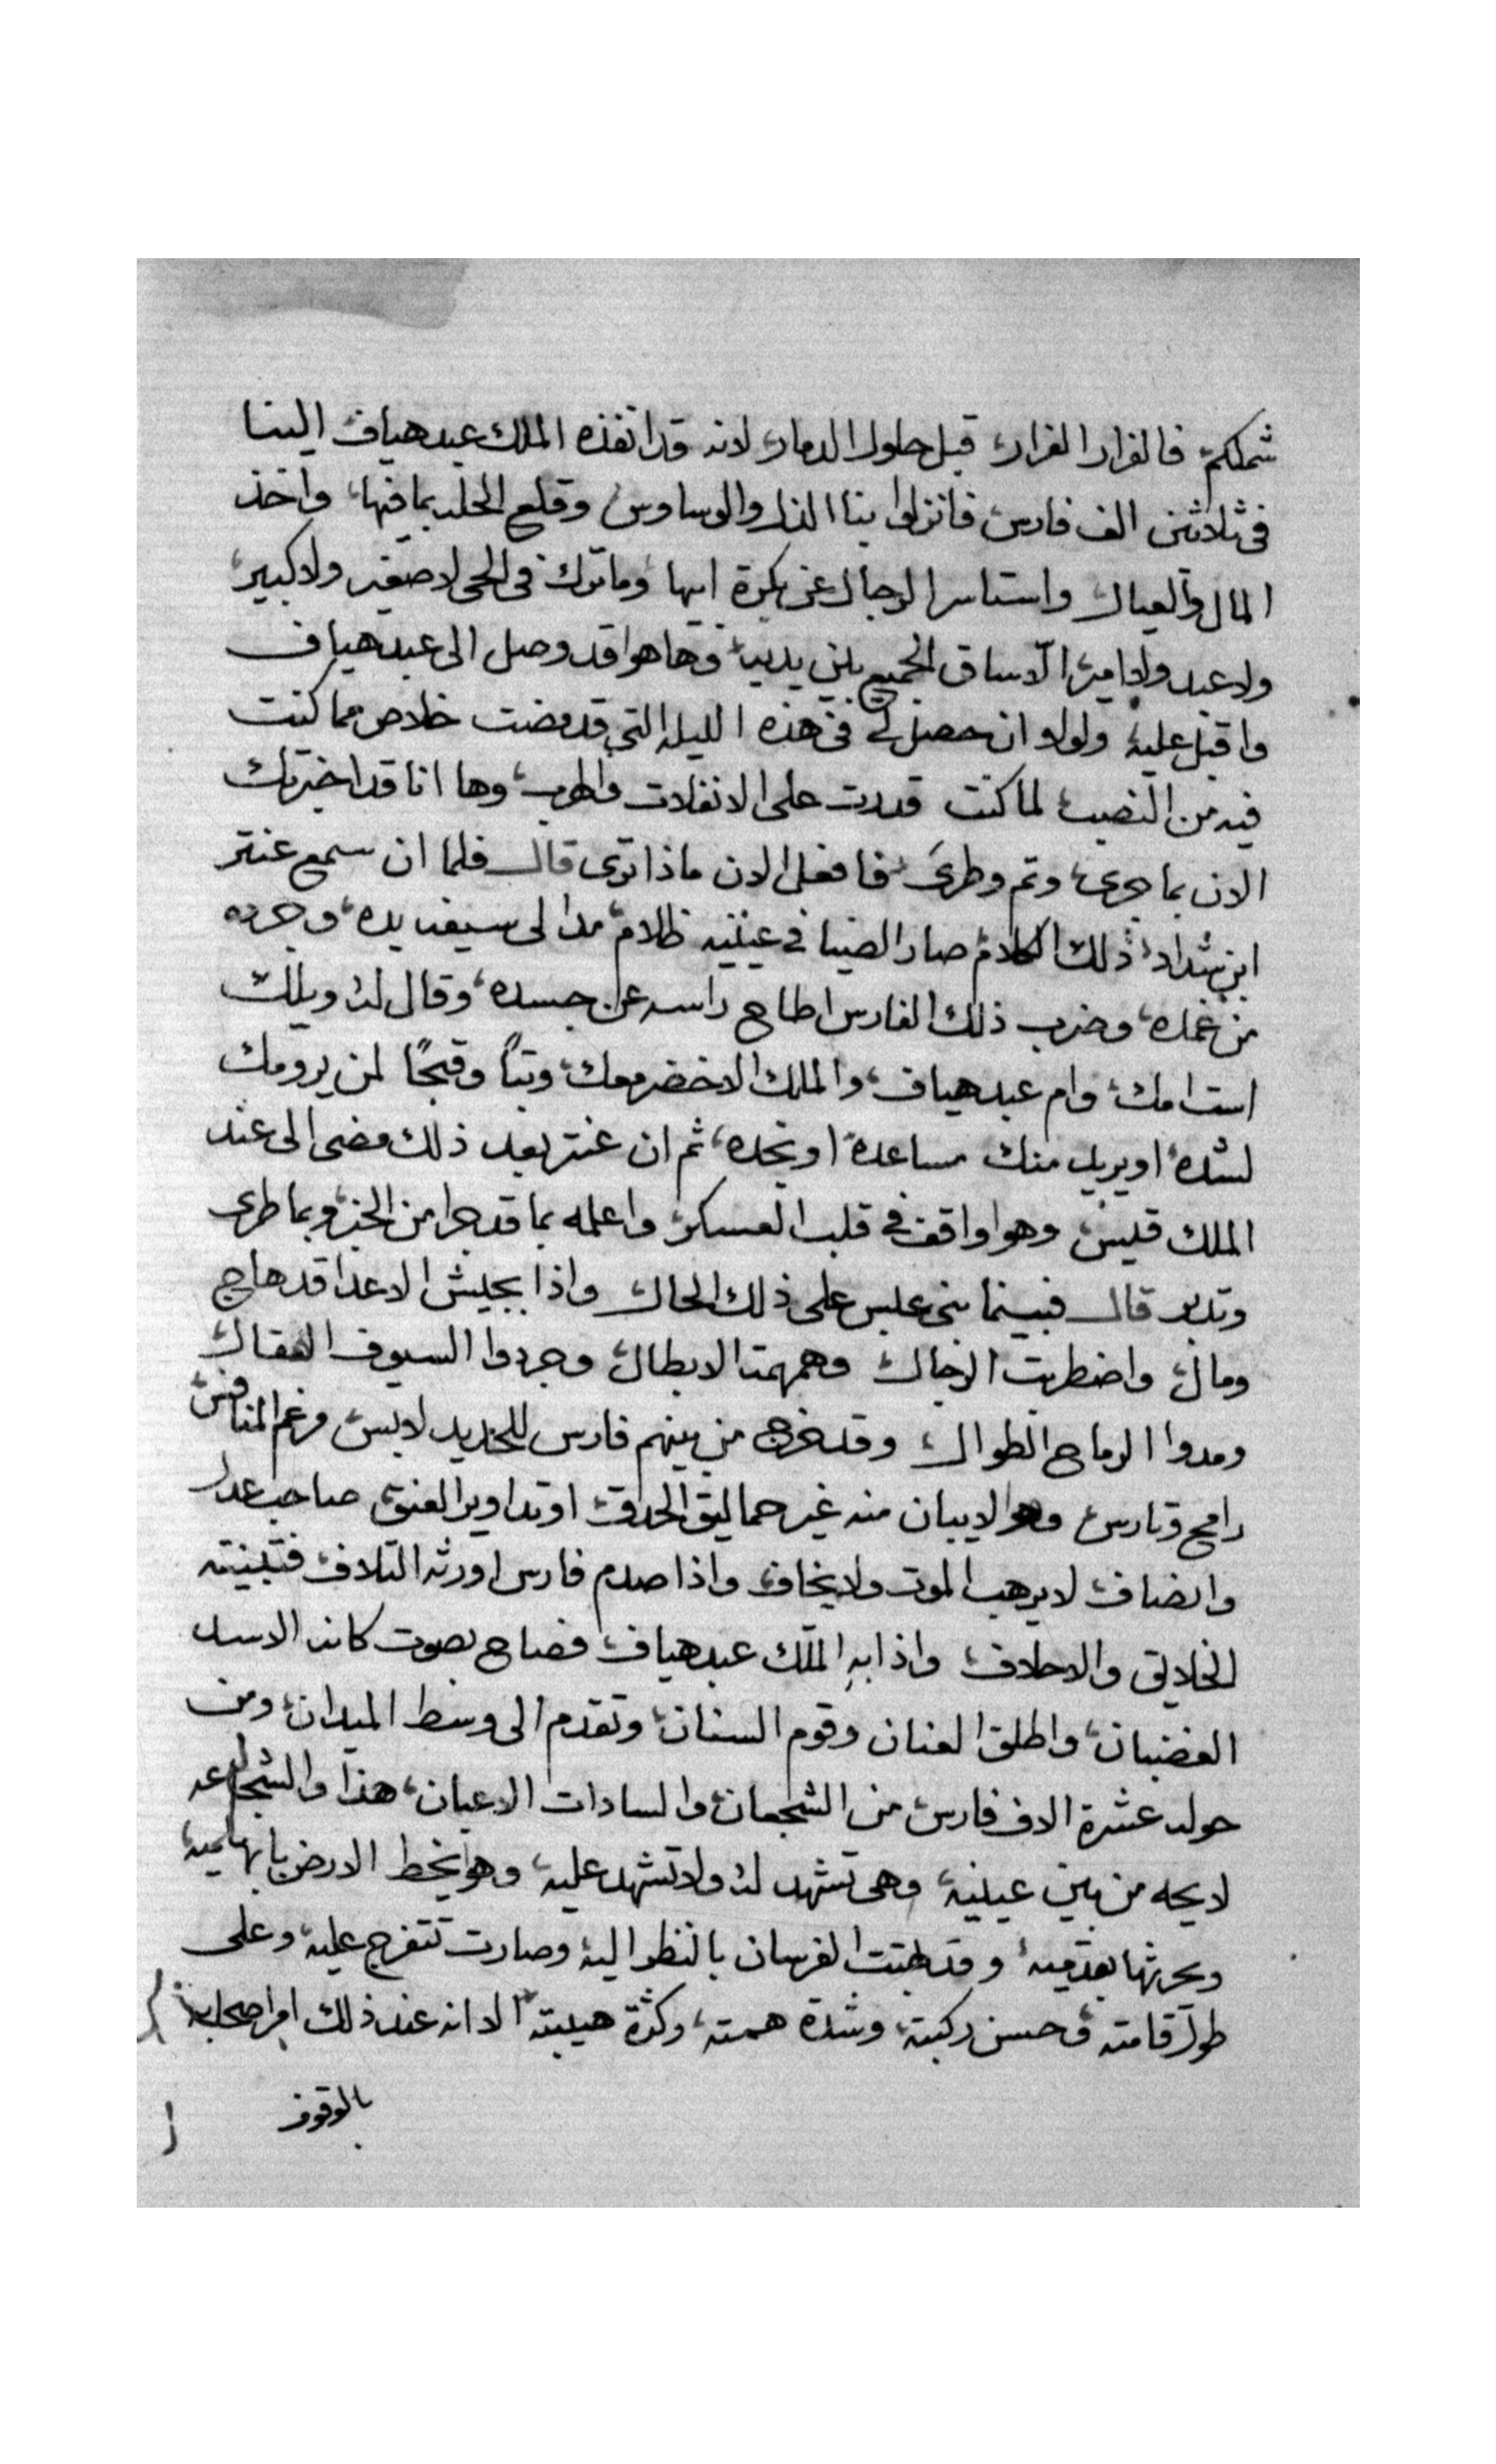 شملكم فالفرار الفرار قبل حلول الدمار لانه قد انفذه الملك عبد هياف الينا
فى ثلاثين الف فارس فانزلوا بنا الذل والوساوس وقلع الحله بما فيها واخذ
المال والعيال واستاسر الرجال عن بكرة ابيها وما ترك فى الحى لا صغير ولا كبير
ولا عبد ولا امير الا ساق الجميع بين يديه وها هوا قد وصل الى عبد هياف
واقبل عليه ولولا ان حصل لى فى هذه الليله التى قد مضت خلاص مما كنت
فيه من النصب لما كنت قدرت على الانفلات والهرب وها انا قد اخبرتك
الان بما جرى وتم وطرى فافعل الان ماذا ترى قال فلما ان سمع عنتر
ابن شداد ذلك الكلام صار الضيا فى عينيه ظلام مد الى سيفه يده وجرده
من غمده وضرب ذلك الفارس اطاح راسه عن جسده وقال له ويلك
است امك وام عبد هياف والملك الاخضر معك وتبًا وقبحًا لمن يرومك
لشده او يريد منك مساعدة او نجده ثم ان عنتر بعد ذلك مضى الى عند
الملك قيس وهوا واقف فى قلب العسكر واعلمه بما قد جرا من الخبر وبما طرى
وتدبر قال فبينما بنى عبس على ذلك الحال واذا بجيش الاعدا قد هاج
ومال واضطربت الرجال وهمهمت الابطال وجردوا السيوف الصقال
ومدوا الرماح الطوال وقد خرج من بينهم فارس للحديد لابس مرغم المنافس
رامح وتارس وهوا لا يبان منه غير حماليق الحدق او تداوير العنق صاحب عدل
وانصاف لا يرهب الموت ولا يخاف واذا صدم فارس اورثه التلاف فتبينته
الخلايق والاحلاف واذا به الملك عبد هياف فصاح بصوت كانه الاسد
الغضبان واطلق العنان وقوم السنان وتقدم الى وسط الميدان ومن
حوله عشرة الاف فارس من الشجعان والسادات الاعيان هذا والشجاعه
لايحه من بين عينيه وهى تشهد له ولا تشهد عليه وهوا يخط الارض بابهاميه
ويحرثها بقدميه وقد بهتت الفرسان بالنظر اليه وصارت تتفرج عليه وعلى
طول قامته وحسن ركبته وشدة همته وكثرة هيبته الا انه عند ذلك امر اصحابه
بالوقوف